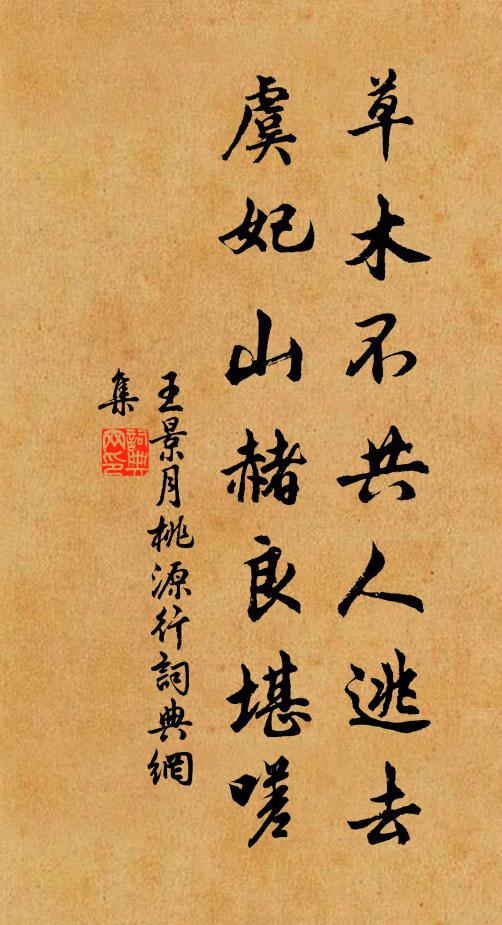 草木不共人逃去
虞妃山赭良堪嗟
王景月桃源行詞典網
集
詞典網印